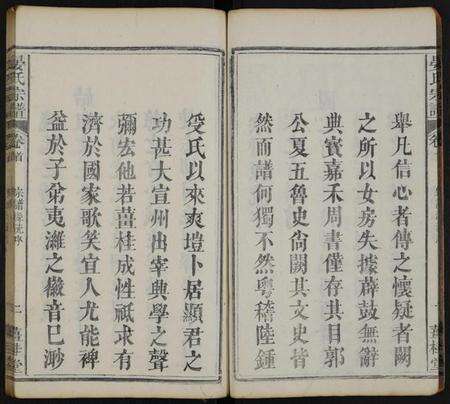 晏氏宗譜
卷
舉凡信心者傳之懷疑者闕
之所以女房失據薜鼓無辭
典寶嘉禾周書僅存其目郭
公夏五魯史尚闕其文史皆
然而譜何獨不然粵稽陸鍾
受氏以來爽塏卜居顯君之
功甚大宣州出宰典學之聲
彌宏他若薑桂成性祗求有
濟於國家歌笑宜人尤能裨
益於子弟夷濰之徽音已渺
晏氏宗譜
卷首
二
薑桂堂